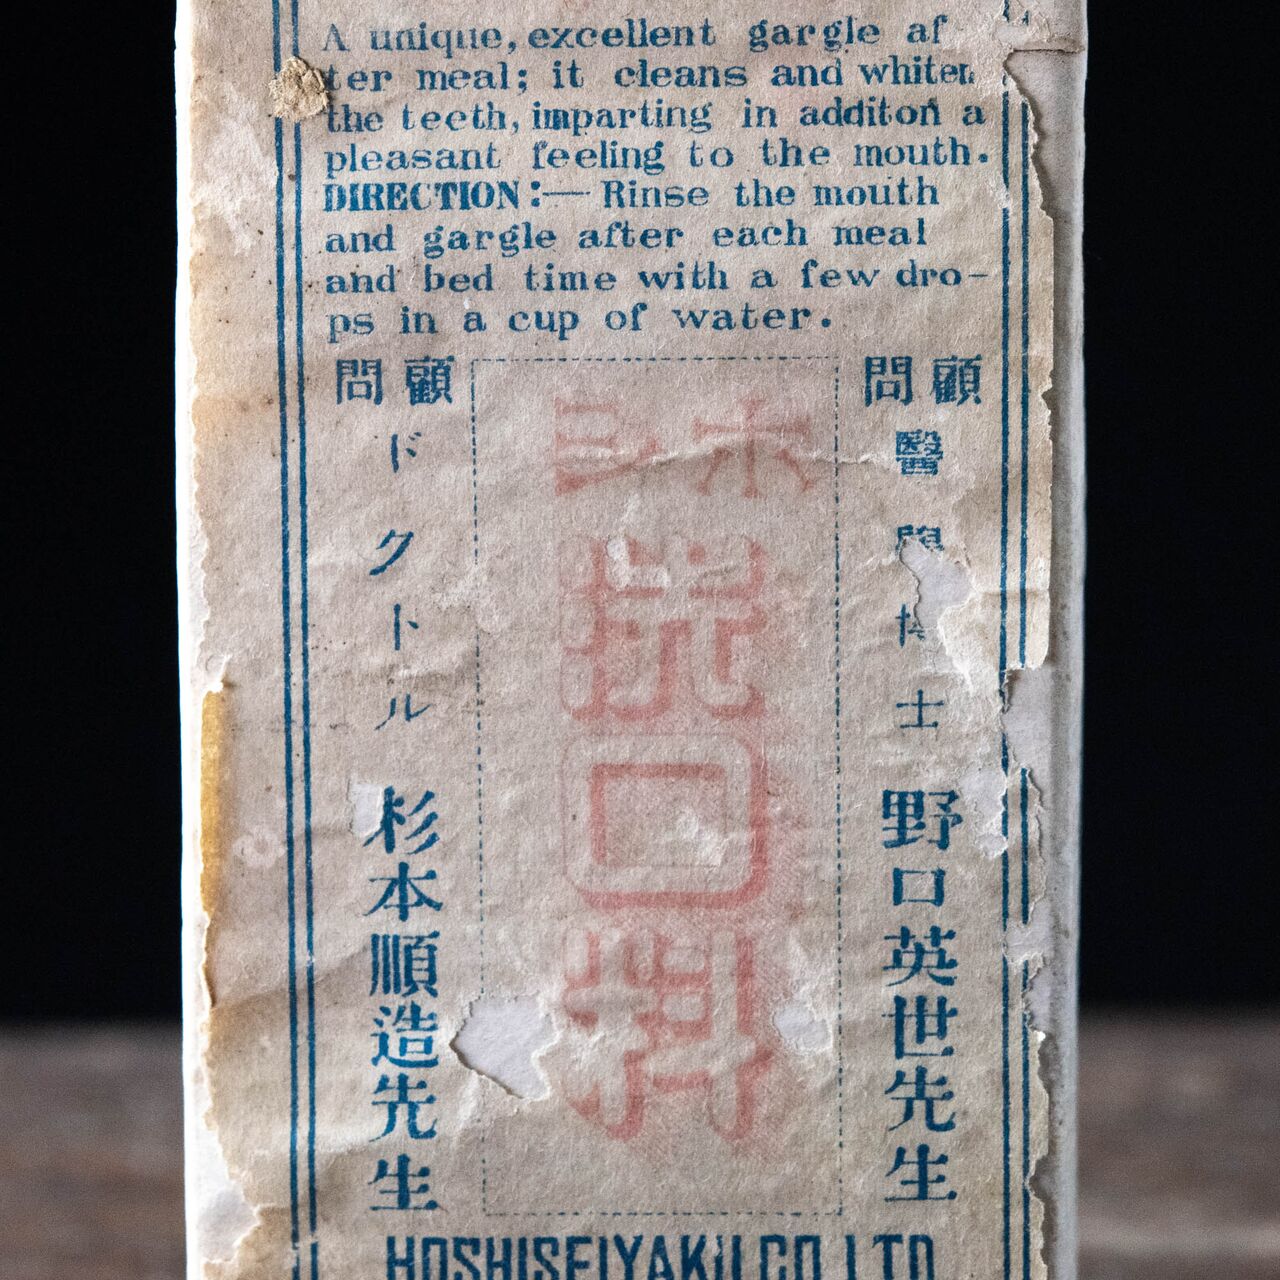 A unique, excellent gargle af
ter meal; it cleans and whiten
the teeth, imparting in additon a
pleasant feeling to the mouth.
DIRECTION:— Rinse the mouth
and gargle after each meal
and bed time with a few dro-
ps in a cup of water.
顧問
醫學博士
野口英世先生
ホシ
洗口料
顧問
ドクトル
杉本順造先生
HOSHISEIYAKU CO. LTD.